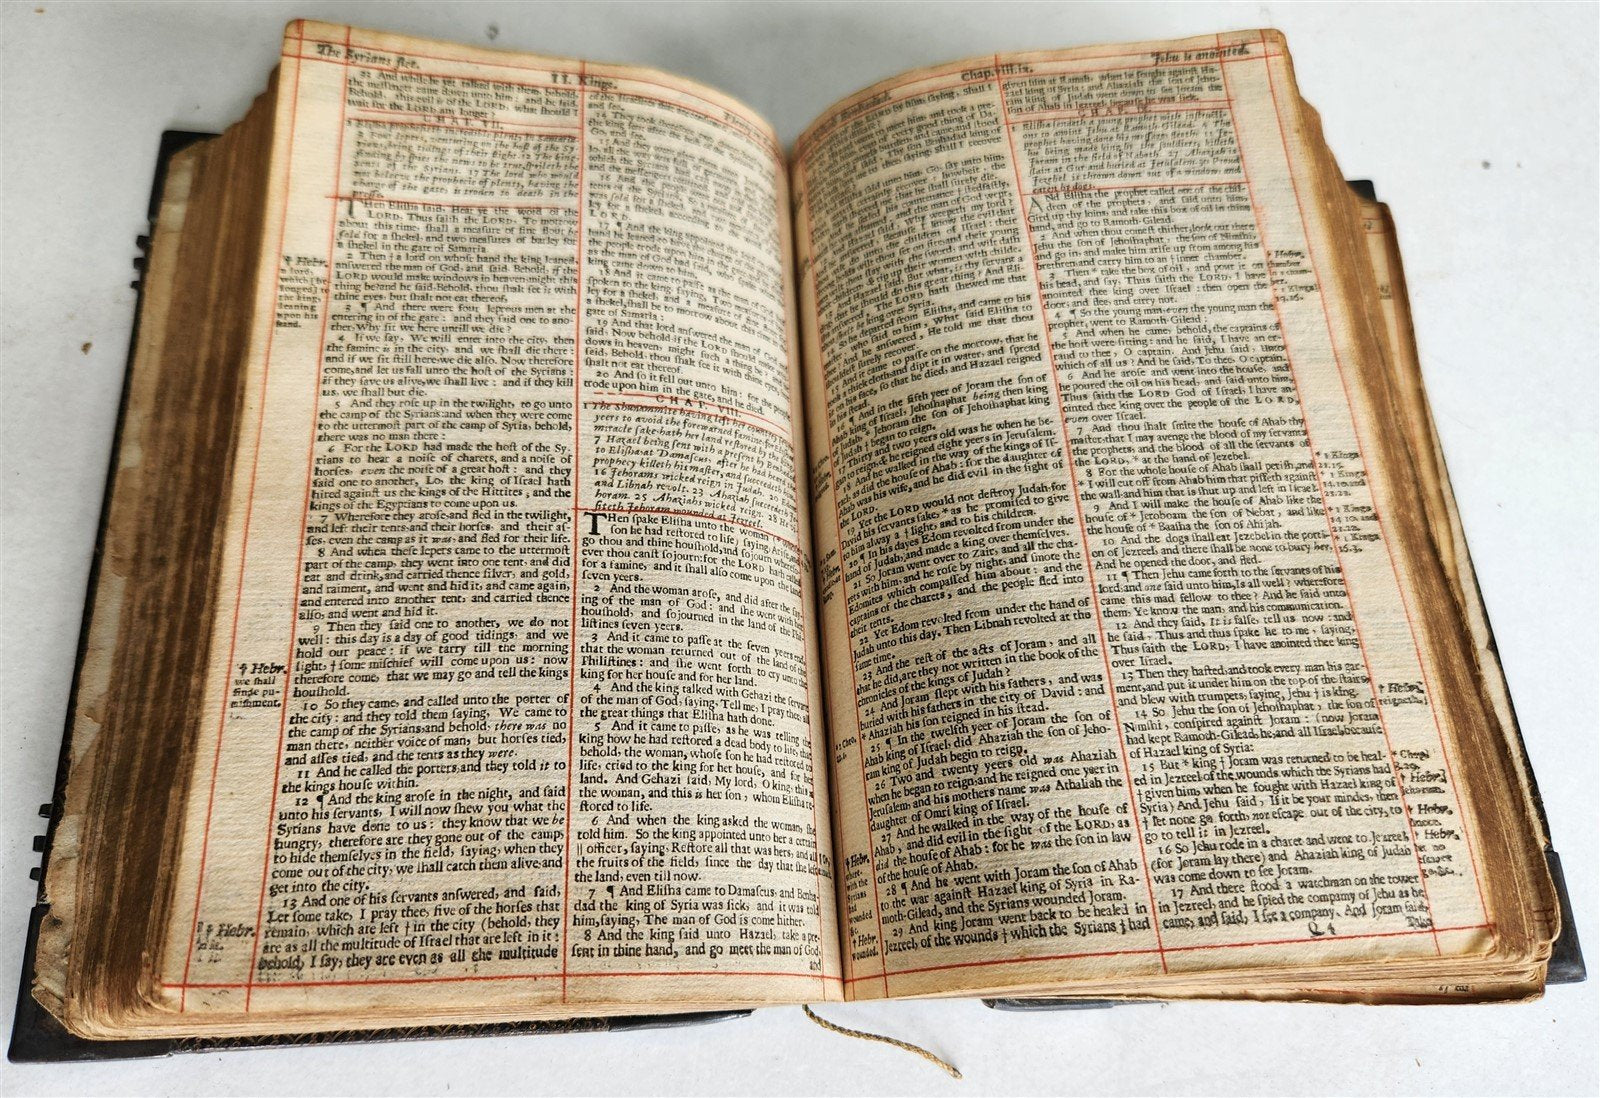 The Syrians flee.
II. Kings.
33 And while he yet talked with them, behold,
the meſſenger came down unto him: and he ſaid,
Behold, this evil is of the LORD, what ſhould I
wait for the LORD any longer?
CHAP. VII.
THen Eliſha ſaid, Hear ye the word of the
LORD, Thus ſaith the LORD, To morrow
about this time, ſhall a meaſure of fine flour be
ſold for a ſhekel, and two meaſures of barley for
a ſhekel in the gate of Samaria.
2 Then † a lord on whoſe hand the king leaned,
anſwered the man of God, and ſaid, Behold, if the
LORD would make windows in heaven, might this
thing be? and he ſaid, Behold, thou ſhalt ſee it with
thine eyes, but ſhalt not eat thereof.
3 ¶ And there were four leprous men at the
entering in of the gate: and they ſaid one to ano-
ther, Why ſit we here untill we die?
4 If we ſay, We will enter into the city, then
the famine is in the city, and we ſhall die there:
and if we ſit ſtill here, we die alſo. Now therefore
come, and let us fall unto the hoſt of the Syrians:
if they ſave us alive, we ſhall live: and if they kill
us, we ſhall but die.
5 And they roſe up in the twilight, to go unto
the camp of the Syrians: and when they were come
to the uttermoſt part of the camp of Syria, behold,
there was no man there:
6 For the LORD had made the hoſt of the Sy-
rians to hear a noiſe of charets, and a noiſe of
horſes, even the noiſe of a great hoſt: and they
ſaid one to another, Lo, the king of Iſrael hath
hired againſt us the kings of the Hittites, and the
kings of the Egyptians to come upon us.
7 Wherefore they aroſe and fled in the twilight,
and left their tents, and their horſes, and their aſ-
ſes, even the camp as it was, and fled for their life.
8 And when theſe lepers came to the uttermoſt
part of the camp, they went into one tent, and did
eat and drink, and carried thence ſilver, and gold,
and raiment, and went and hid it, and came again,
and entered into another tent, and carried thence
alſo, and went and hid it.
9 Then they ſaid one to another, we do not
well: this day is a day of good tidings, and we
hold our peace: if we tarry till the morning
light, † ſome miſchief will come upon us: now
therefore come, that we may go and tell the kings
houſhold.
10 So they came, and called unto the porter of
the city: and they told them ſaying, We came to
the camp of the Syrians, and behold, there was no
man there, neither voice of man, but horſes tied,
and aſſes tied, and the tents as they were.
11 And he called the porters, and they told it to
the kings houſe within.
12 ¶ And the king aroſe in the night, and ſaid
unto his ſervants, I will now ſhew you what the
Syrians have done to us: they know that we be
hungry, therefore are they gone out of the camp,
to hide themſelves in the field, ſaying, when they
come out of the city, we ſhall catch them alive, and
get into the city.
13 And one of his ſervants anſwered, and ſaid,
Let ſome take, I pray thee, five of the horſes that
remain, which are left † in the city (behold, they
are as all the multitude of Iſrael that are left in it:
behold, I ſay, they are even as all the multitude
† Hebr.
a lord,
the king,
leaning
upon his
hand.
† Hebr.
we ſhall
finde pu-
niſhment.
† Hebr.
14 They took therefore
Go, and ſee.
LORD.
17 ¶ And the king appointed
the people trode
as the man of God had ſaid, who
king came down to him.
18 And it came to paſſe as the man of God
ſpoken to the king, ſaying, Two
ley for a ſhekel, and a meaſure of fine
a ſhekel, ſhall be to morrow about this
gate of Samaria:
19 And that lord anſwered the man of God,
ſaid, Now behold, if the LORD ſhould
dows in heaven, might ſuch a thing be? and
ſaid, Behold, thou ſhalt ſee it with thine
ſhalt not eat thereof.
20 And ſo it fell out unto him: for the people
trode upon him in the gate, and he died.
CHAP. VIII.
1 The Shunammite having left her country
yeers to avoid the forewarned famine, for
miracle ſake hath her land reſtored by the
7 Hazael being ſent with a preſent by Benhadad
to Eliſha at Damaſcus, after he had heard the
prophecy killeth his maſter, and ſucceedeth
16 Jehorams wicked reign in Judah. 20 Edom
and Libnah revolt. 23 Ahaziah ſucceedeth Je-
horam. 25 Ahaziahs wicked reign. 28 He vi-
ſiteth Jehoram wounded at Jezreel.
THen ſpake Eliſha unto the woman (* whoſe
ſon he had reſtored to life) ſaying, Ariſe, and
go thou and thine houſhold, and ſojourn whereſo-
ever thou canſt ſojourn: for the LORD hath called
for a famine, and it ſhall alſo come upon the land
ſeven yeers.
2 And the woman aroſe, and did after the ſay-
ing of the man of God: and ſhe went with her
houſhold, and ſojourned in the land of the Phi-
liſtines ſeven yeers.
3 And it came to paſſe at the ſeven yeers end,
that the woman returned out of the land of the
Philiſtines: and ſhe went forth to cry unto the
king for her houſe and for her land.
4 And the king talked with Gehazi the ſervant
of the man of God, ſaying, Tell me, I pray thee, all
the great things that Eliſha hath done.
5 And it came to paſſe, as he was telling the
king how he had reſtored a dead body to life, that
behold, the woman, whoſe ſon he had reſtored to
life, cried to the king for her houſe, and for her
land. And Gehazi ſaid, My lord, O king, this is
the woman, and this is her ſon, whom Eliſha re-
ſtored to life.
6 And when the king asked the woman, ſhe
told him. So the king appointed unto her a certain
|| officer, ſaying, Reſtore all that was hers, and all
the fruits of the field, ſince the day that ſhe left
the land, even till now.
7 ¶ And Eliſha came to Damaſcus, and Benha-
dad the king of Syria was ſick, and it was told
him, ſaying, The man of God is come hither.
8 And the king ſaid unto Hazael, take a pre-
ſent in thine hand, and go meet the man of God,
and
Chap. viii. ix.
Jehu is anointed.
wept. And
the children of Iſrael: their
and their young
their women with childe.
And Hazael ſaid, But what, is thy ſervant a
dog, that he ſhould do this great thing? And Eli-
ſha anſwered, The LORD hath ſhewed me that
thou ſhalt be king over Syria.
14 So he departed from Eliſha, and came to his
maſter, who ſaid to him, What ſaid Eliſha to
thee? And he anſwered, He told me that thou
ſhouldeſt ſurely recover.
15 And it came to paſſe on the morrow, that he
took a thick cloth, and dipt it in water, and ſpread
it on his face, ſo that he died, and Hazael reigned
in his ſtead.
16 ¶ And in the fifth yeer of Joram the ſon of
Ahab king of Iſrael, Jehoſhaphat being then king
of Judah, Jehoram the ſon of Jehoſhaphat king
of Judah † began to reign.
17 Thirty and two yeers old was he when he be-
gan to reign, & he reigned eight yeers in Jeruſalem.
18 And he walked in the way of the kings of Iſ-
rael, as did the houſe of Ahab: for the daughter of
Ahab was his wife, and he did evil in the ſight of
the LORD.
19 Yet the LORD would not deſtroy Judah, for
David his ſervants ſake, * as he promiſed to give
to him alway a † light, and to his children.
20 ¶ In his dayes Edom revolted from under the
hand of Judah, and made a king over themſelves.
21 So Joram went over to Zair, and all the cha-
rets with him: and he roſe by night, and ſmote the
Edomites which compaſſed him about: and the
captains of the charets, and the people fled into
their tents.
22 Yet Edom revolted from under the hand of
Judah unto this day. Then Libnah revolted at the
ſame time.
23 And the reſt of the acts of Joram, and all
that he did, are they not written in the book of the
chronicles of the kings of Judah?
24 And Joram ſlept with his fathers, and was
buried with his fathers in the city of David: and
* Ahaziah his ſon reigned in his ſtead.
25 ¶ In the twelfth yeer of Joram the ſon of
Ahab king of Iſrael, did Ahaziah the ſon of Jeho-
ram king of Judah begin to reign.
26 Two and twenty yeers old was Ahaziah
when he began to reign, and he reigned one yeer in
Jeruſalem, and his mothers name was Athaliah the
daughter of Omri king of Iſrael.
27 And he walked in the way of the houſe of
Ahab, and did evil in the ſight of the LORD, as
did the houſe of Ahab: for he was the ſon in law
of the houſe of Ahab.
28 ¶ And he went with Joram the ſon of Ahab
to the war againſt Hazael king of Syria in Ra-
moth-Gilead, and the Syrians wounded Joram.
29 And king Joram went back to be healed in
Jezreel, of the wounds † which the Syrians † had
† Hebr.
where-
with the
Syrians
had
wounded
† Hebr.
wounded.
given him at Ramah, when he fought againſt Ha-
zael king of Syria: and Ahaziah the ſon of Jeho-
ram king of Judah went down to ſee Joram the
ſon of Ahab in Jezreel, becauſe he was ſick.
CHAP. IX.
1 Eliſha ſendeth a young prophet with inſtructi-
ons to anoint Jehu at Ramoth Gilead. 4 The
prophet having done his meſſage, fleeth. 11 Je-
hu being made king by the ſouldiers, killeth
Joram in the field of Naboth. 27 Ahaziah is
ſlain at Gur and buried at Jeruſalem. 30 Proud
Jezebel is thrown down out of a window, and
eaten by dogs.
ANd Eliſha the prophet called one of the chil-
dren of the prophets, and ſaid unto him,
Gird up thy loins, and take this box of oil in thine
hand, and go to Ramoth-Gilead.
2 And when thou comeſt thither, look out there
Jehu the ſon of Jehoſhaphat, the ſon of Nimſhi,
and go in, and make him ariſe up from among his
brethren, and carry him to an † inner chamber.
3 Then * take the box of oil, and pour it on
his head, and ſay, Thus ſaith the LORD, I have
anointed thee king over Iſrael: then open the
door, and flee, and carry not.
4 ¶ So the young man, even the young man the
prophet, went to Ramoth-Gilead:
5 And when he came, behold, the captains of
the hoſt were ſitting: and he ſaid, I have an er-
rand to thee, O captain. And Jehu ſaid, Unto
which of all us? And he ſaid, To thee, O captain.
6 And he aroſe and went into the houſe, and
he poured the oil on his head, and ſaid unto him,
Thus ſaith the LORD God of Iſrael, I have an-
ointed thee king over the people of the LORD,
even over Iſrael.
7 And thou ſhalt ſmite the houſe of Ahab thy
maſter, that I may avenge the blood of my ſervants
the prophets, and the blood of all the ſervants of
the LORD, * at the hand of Jezebel.
8 For the whole houſe of Ahab ſhall periſh, and
* I will cut off from Ahab him that piſſeth againſt
the wall, and him that is ſhut up and left in Iſrael.
9 And I will make the houſe of Ahab like the
houſe of * Jeroboam the ſon of Nebat, and like
the houſe of * Baaſha the ſon of Ahijah.
10 And the dogs ſhall eat Jezebel in the porti-
on of Jezreel, and there ſhall be none to bury her.
And he opened the door, and fled.
11 ¶ Then Jehu came forth to the ſervants of his
lord, and one ſaid unto him, Is all well? wherefore
came this mad fellow to thee? And he ſaid unto
them, Ye know the man, and his communication.
12 And they ſaid, It is falſe, tell us now: and
he ſaid, Thus and thus ſpake he to me, ſaying,
Thus ſaith the LORD, I have anointed thee king
over Iſrael.
13 Then they haſted, and took every man his gar-
ment, and put it under him on the top of the ſtairs,
and blew with trumpets, ſaying, Jehu † is king.
14 So Jehu the ſon of Jehoſhaphat, the ſon of
Nimſhi, conſpired againſt Joram: (now Joram
had kept Ramoth-Gilead, he, and all Iſrael, becauſe
of Hazael king of Syria:
15 But * king † Joram was returned to be heal-
ed in Jezreel, of the wounds which the Syrians had
† given him, when he fought with Hazael king of
Syria) And Jehu ſaid, If it be your mindes, then
† let none go forth, nor eſcape out of the city, to
go to tell it in Jezreel.
16 So Jehu rode in a charet and went to Jezreel,
(for Joram lay there) and Ahaziah king of Judah
was come down to ſee Joram.
17 And there ſtood a watchman on the tower
in Jezreel, and he ſpied the company of Jehu as he
came, and ſaid, I ſee a company. And Joram ſaid,
Q 4
Take
† Hebr.
chamber
* 1 Kings
19.16.
* 1 Kings
21.15.
* 1 Kings
14.10. and
21.21.
* 1 Kings
14.10. and
21.22.
* 1 Kings
16.3.
† Hebr.
reigneth.
* Chap.
8.29.
† Hebr.
Jehoram.
† Hebr.
ſmote.
† Hebr.
let no